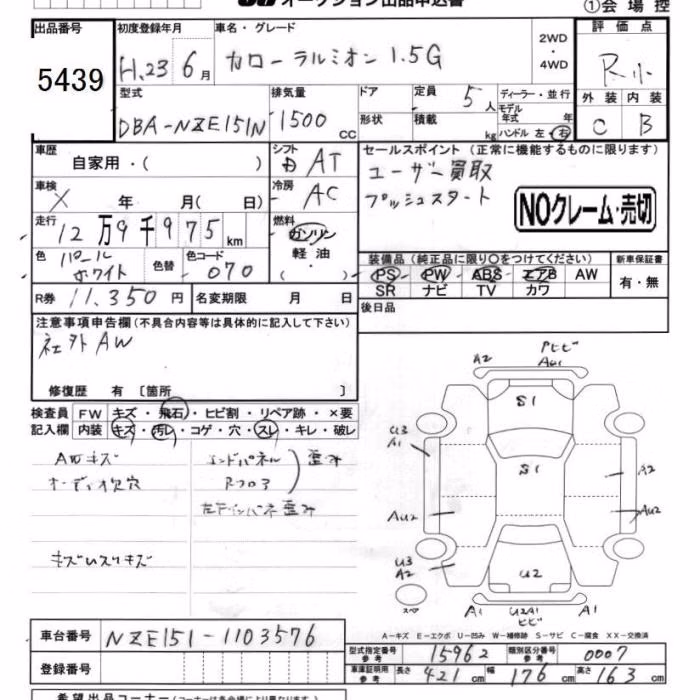 オークション出品申込書
①会場控
出品番号
5439
初度登録年月
H.23 6月
車名・グレード
カローラルミオン 1.5G
2WD
・
4WD
評価点
R小
外装 内装
C B
型式
DBA-NZE151N
排気量
1500 cc
ドア
形状
定員 5人
積載 kg
ディーラー・並行
モデル年式 年
ハンドル 左・右
車歴
自家用・( )
シフト
AT
車検
X 年 月( 日)
冷房
AC
走行
12万9千975km
燃料
ガソリン
軽油
( )
色
パール
ホワイト
色替
色コード
070
R券 11,350円
名変期限 月 日
セールスポイント(正常に機能するものに限ります)
ユーザー買取
プッシュスタート
NOクレーム・売切
装備品(純正品に限り○をつけてください)
PS PW ABS エアB AW
SR ナビ TV カワ
新車保証書
有・無
後日品
注意事項申告欄(不具合内容等は具体的に記入して下さい)
社外AW
修復歴 有 〔箇所 〕
検査員記入欄
FW キズ・飛石・ヒビ割・リペア跡・×要
内装 キズ・汚レ・コゲ・穴・スレ・キレ・破レ
AWキズ
オーディオ欠穴
エンドパネル
Rフロア
歪み
左Fインパネ歪み
A2
AW1
S1
U3
A1
S1
A2
AW2
AW2
U3
A2
U2
スペア
A1
U2A1
ヒビ
A1
A-キズ E-エクボ U-凹み W-補修跡 S-サビ C-腐食 XX-交換済
車台番号 NZE151-1103576
登録番号
型式指定番号 参考 15962
類別区分番号 参考 0007
車庫証明用 参考 長さ 421cm 幅 176cm 高さ 163cm
希望出品コーナー